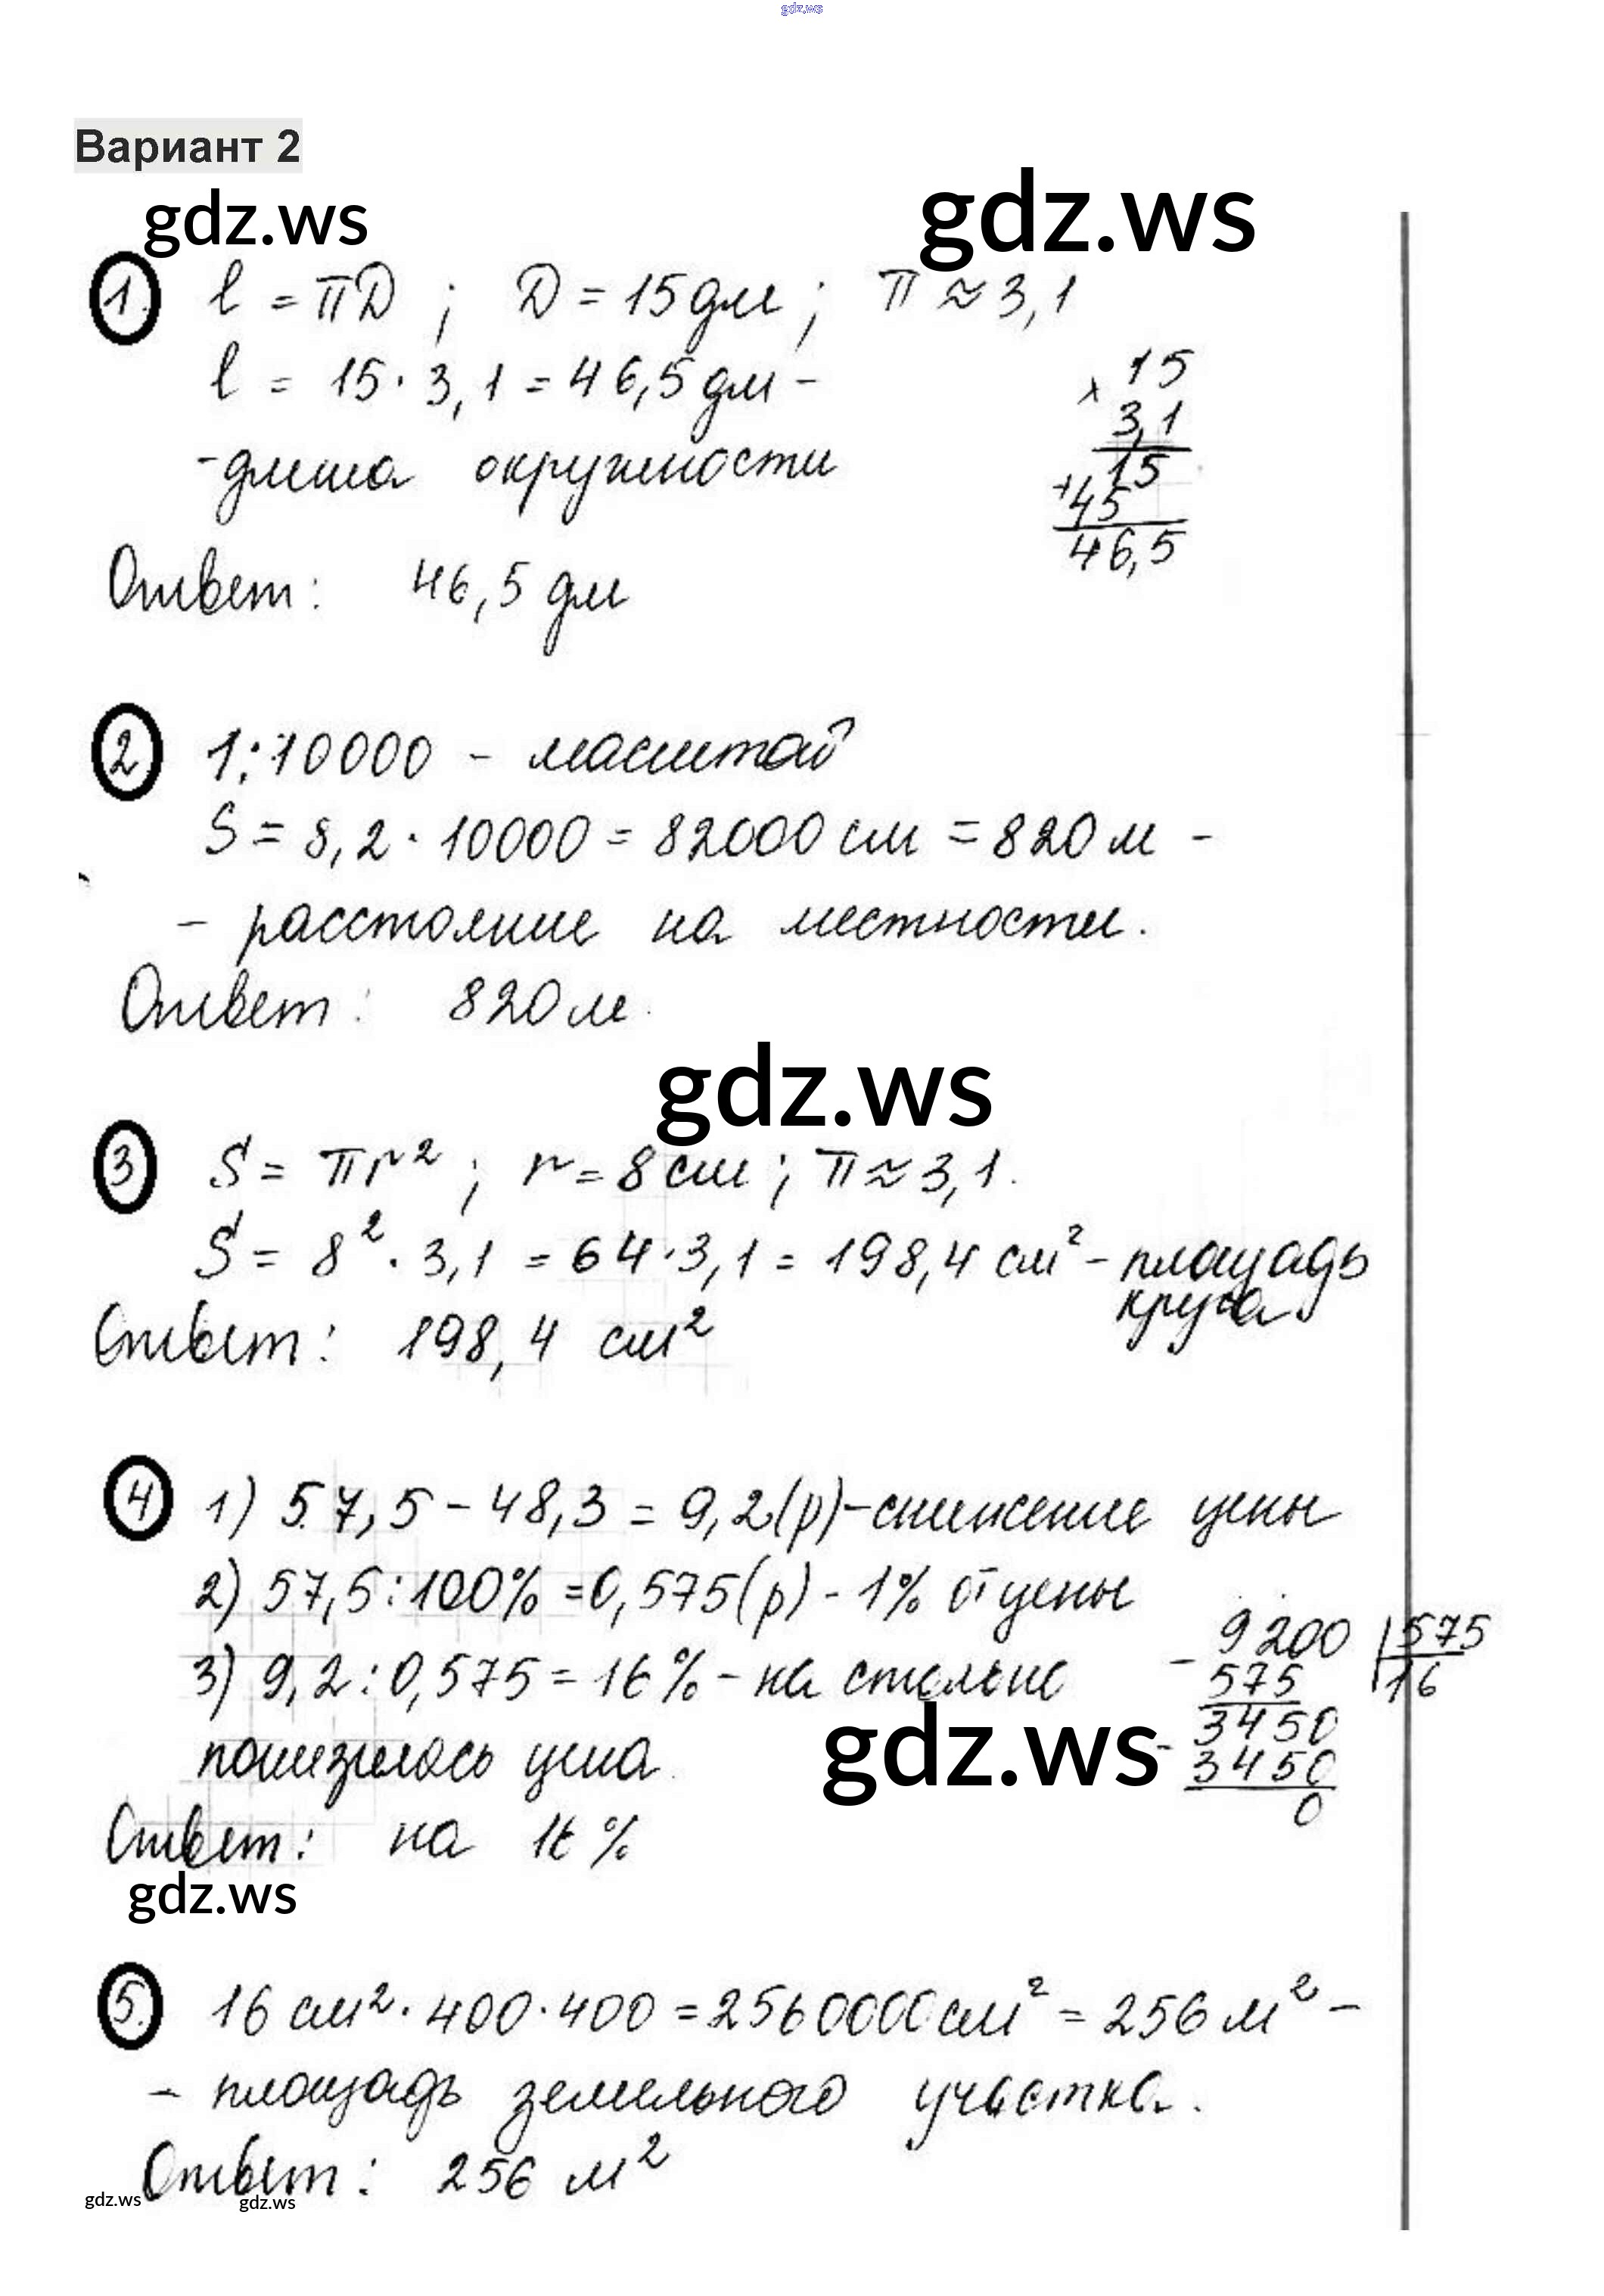 gdz.ws
Вариант 2
gdz.ws
gdz.ws
1. l = πD ; D = 15 дм ; π ≈ 3,1
l = 15 · 3,1 = 46,5 дм -
- длина окружности
× 15
3,1
15
+ 45
46,5
Ответ: 46,5 дм
2 1:10000 - масштаб
S = 8,2 · 10000 = 82000 см = 820 м -
- расстояние на местности.
Ответ: 820 м.
gdz.ws
3 S = πr² ; r = 8 см ; π ≈ 3,1.
S = 8² · 3,1 = 64 · 3,1 = 198,4 см² - площадь
круга
Ответ: 198,4 см²
4 1) 57,5 - 48,3 = 9,2 (р) - снижение цены
2) 57,5 : 100% = 0,575 (р) - 1% от цены
3) 9,2 : 0,575 = 16% - на столько
понизилась цена.
- 9200 | 575
575 16
3450
- 3450
0
gdz.ws
Ответ: на 16%
gdz.ws
5. 16 см² · 400 · 400 = 2560000 см² = 256 м² -
- площадь земельного участка.
Ответ: 256 м²
gdz.ws gdz.ws